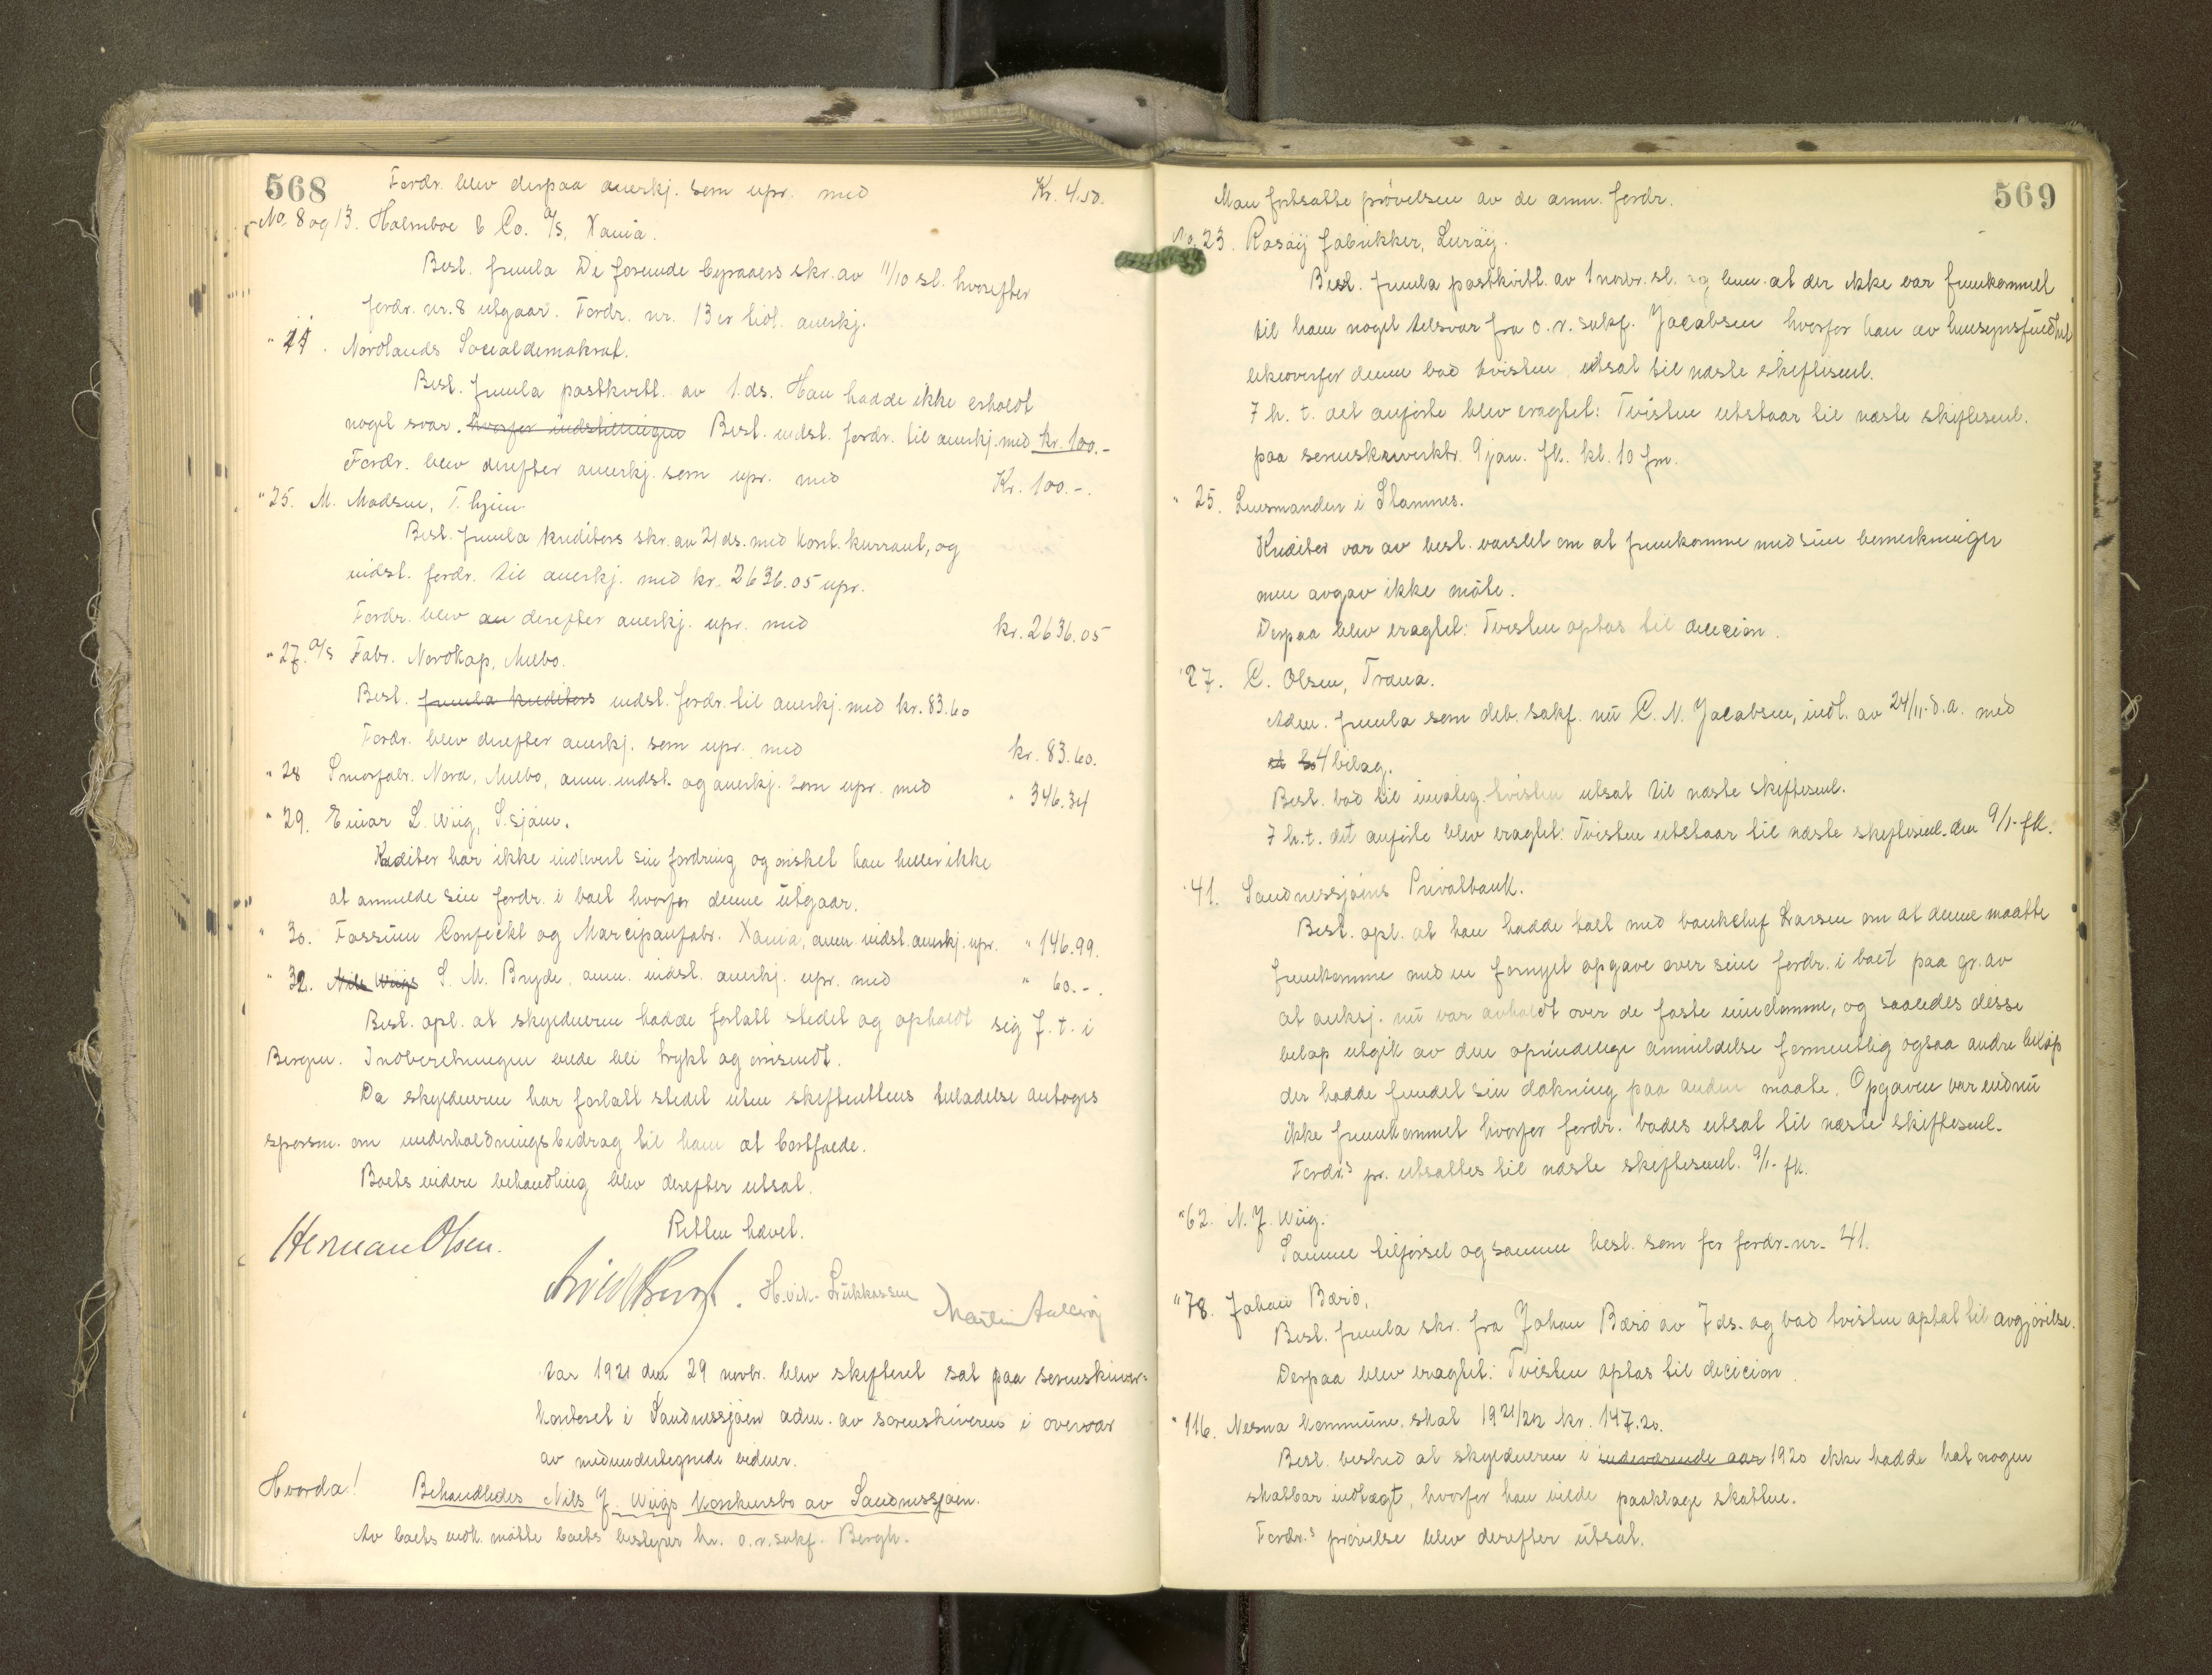 568
Fordr. blev derpaa anerkj. som upr. med Kr. 4.50.
No. 8 og 13. Holmboe & Co. A/S, Xania.
Best. fremla De forenede byraaers skr. av 11/10 sl. hvorefter
fordr. nr. 8 utgaar. Fordr. nr. 13 er tidl. anerkj.
" . Nordlands Socialdemokrat.
Best. fremla postkvitt. av 1. ds. Han hadde ikke erholdt
noget svar. hvorfor indstillingen Best. indst. fordr. til anerkj. med kr. 100.-
Fordr. blev derefter anerkj. som upr. med Kr. 100.-.
" 25. M. Madsen, T.hjem.
Best. fremla kreditors skr. av 21 ds. med kont. kurrant, og
indst. fordr. til anerkj. med kr. 2636.05 upr.
Fordr. blev an derefter anerkj. upr. med kr. 2636.05
" 27. A/S Fabr. Nordkap, Melbo.
Best. fremla kreditors indst. fordr. til anerkj. med kr. 83.60
Fordr. blev derefter anerkj. som upr. med kr. 83.60.
" 28 Smørfabr. Nora, Melbo, anm. indst. og anerkj. som upr. med " 346.34
" 29. Einar L. Wiig, S.sjøen.
Kreditor har ikke indlevert sin fordring og ønsket han heller ikke
at anmelde sin fordr. i boet hvorfor denne utgaar.
" 30. Fossum Confeckt og Marcipanfabr. Xania, anm. indst. anerkj. upr. " 146.99.
" 32. Nils Wiigs S. M. Bryde, anm. indst. anerkj. upr. med " 60.-.
Best. opl. at skyldneren hadde forlatt stedet og opholdt sig f. t. i
Bergen. Indberetningen vilde bli trykt og omsendt.
Da skyldneren har forlatt stedet uten skifterettens tilladelse antoges
spørsm. om underholdningsbidrag til ham at bortfalde.
Boets videre behandling blev derefter utsat.
Retten hævet.
Herman Olsen.
Arvid Bergh. H. vik-Lukkassen Martin
Aar 1921 den 29 novbr. blev skifteret sat paa sorenskriver-
kontoret i Sandnessjøen adm. av sorenskriveren i overvær
av medundertegnede vidner.
Hvorda!
Behandledes Nils J. Wiigs konkursbo av Sandnessjøen.
Av boets vedk. møtte boets bestyrer hr. o.r.sakf. Bergh.
569
Man fortsatte prøvelsen av de anm. fordr.
No. 23. Rosøy fabrikker, Lurøy.
Best. fremla postkvitt. av 1 novbr. sl. og bem. at der ikke var fremkommet
til ham noget tilsvar fra o.r.sakf. Jacobsen hvorfor han av hensynsfuldhet
likeoverfor denne bad tvisten utsat til næste skiftesaml.
I h. t. det anførte blev eragtet: Tvisten utstaar til næste skiftesaml.
paa sorenskriverktr. 9 jan. fk. kl. 10 fm.
" 25. Lensmanden i Stamnes.
Kreditor var av best. varslet om at fremkomme med sine bemerkninger
men avgav ikke møte.
Derpaa blev eragtet: Tvisten optas til decicion.
" 27. C. Olsen, Træna.
Adm. fremla som deb. sakf. nu C. N. Jacobsen, indl. av 24/11. d.a. med
4 bilag.
Best. bad til imøteg. tvisten utsat til næste skiftesaml.
I h. t. det anførte blev eragtet: Tvisten utstaar til næste skiftesaml. den 9/1. fk.
" 41. Sandnessjøens Privatbank.
Best. opl. at han hadde talt med bankchef Larsen om at denne maatte
fremkomme med en fornyet opgave over sine fordr. i boet paa gr. av
at auksj. nu var avholdt over de faste eiendomme, og saaledes disse
beløp utgik av den oprindelige anmeldelse formentlig ogsaa andre beløp
der hadde fundet sin dækning paa anden maate. Opgaven var endnu
ikke fremkommet hvorfor fordr. bades utsat til næste skiftesaml.
Fordr.s pr. utsattes til næste skiftesaml. 9/1. fk.
" 62. N. J. Wiig.
Samme tilførsel og samme besl. som for fordr. nr. 41.
" 78. Johan Bærø,
Best. fremla skr. fra Johan Bærø av 7 ds. og bad tvisten optat til avgjørelse.
Derpaa blev eragtet: Tvisten optas til decicion.
" 116. Nesna kommune. skat 1921/22 kr. 147.20.
Best. bestred at skyldneren i indeværende aar 1920 ikke hadde hat nogen
skatbar indtægt, hvorfor han vilde paaklage skatten.
Fordr.s prøvelse blev derefter utsat.